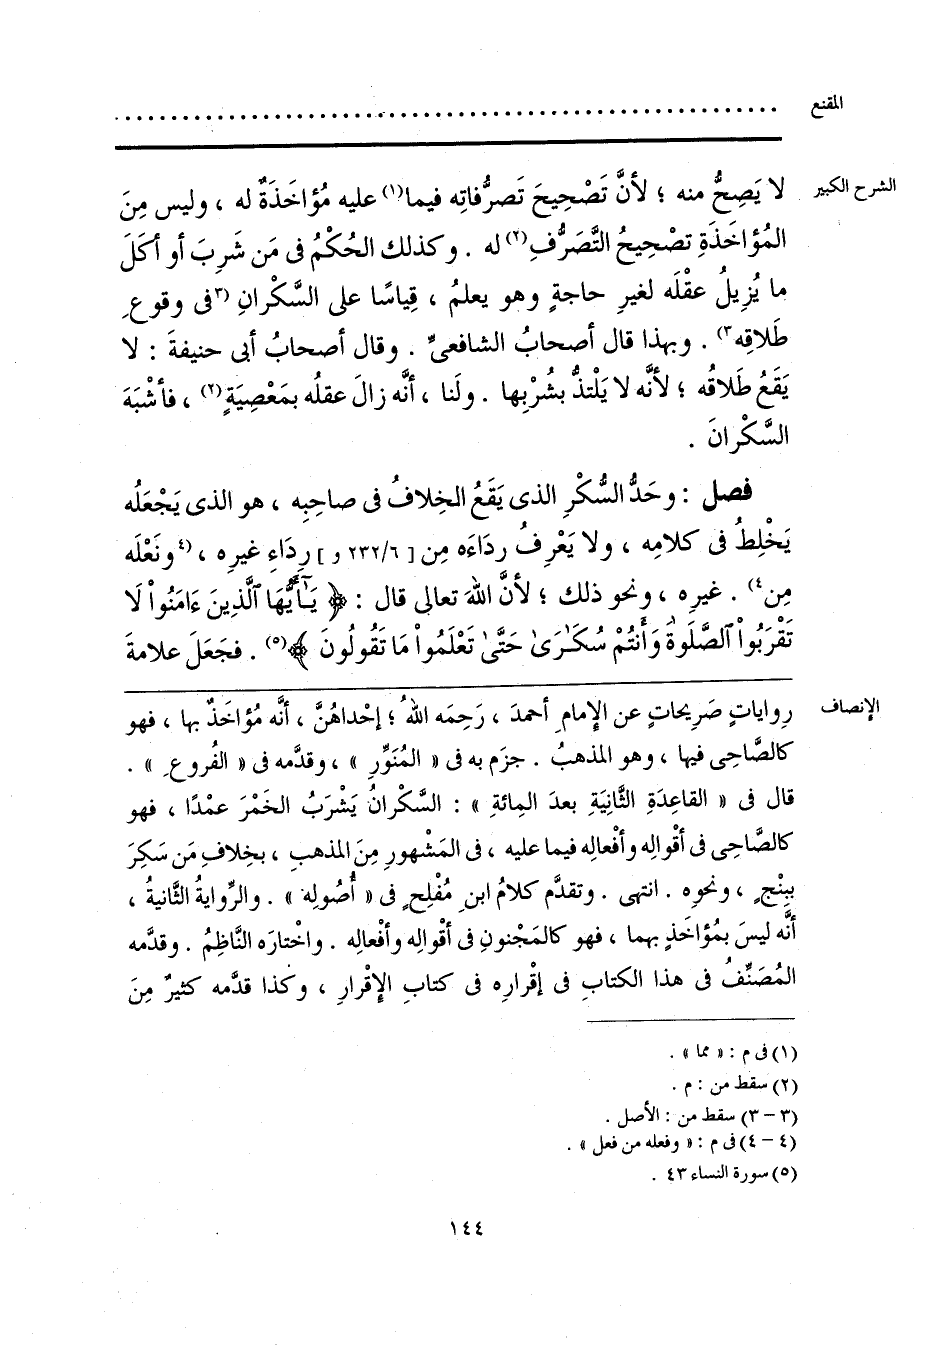 المقنع ............................................................
الشرح الكبير لا يَصِحُّ منه ؛ لأنَّ تَصْحِيحَ تَصرُّفاتِه فيما(١) عليه مُؤاخَذَةٌ له ، وليس مِنَ
المُؤاخَذَةِ تصْحِيحُ التَّصَرُّفِ(٢) له . وكذلك الحُكْمُ فى مَن شَرِبَ أو أكَلَ
ما يُزِيلُ عقْلَه لغيرِ حاجةٍ وهو يعلمُ ، قِياسًا على السَّكْرانِ (٣فى وقوعِ
طَلاقِه٣) . وبهذا قال أصحابُ الشافعىِّ . وقال أصحابُ أبى حنيفةَ : لا
يَقَعُ طَلاقُه ؛ لأنَّه لا يَلْتذُّ بشُرْبِها . ولَنا ، أنَّه زالَ عقلُه بمَعْصِيَةٍ(٢) ، فأشْبَهَ
السَّكْرانَ .
فصل : وحَدُّ السُّكْرِ الذى يَقَعُ الخِلافُ فى صاحِبِه ، هو الذى يَجْعَلُه
يَخْلِطُ فى كلامِه ، ولا يَعْرِفُ رداءَه مِن [ ٢٣٢/٦ و ] رِدَاءِ غيرِه ، (٤ونَعْلَه
مِن٤) . غيرِه ، ونحوِ ذلك ؛ لأنَّ اللهَ تعالى قال : ﴿ يَـٰٓأَيُّهَا ٱلَّذِينَ ءَامَنُوا۟ لَا
تَقْرَبُوا۟ ٱلصَّلَوٰةَ وَأَنتُمْ سُكَـٰرَىٰ حَتَّىٰ تَعْلَمُوا۟ مَا تَقُولُونَ ﴾(٥) . فجَعَلَ علامةَ
الإنصاف رِواياتٍ صَرِيحاتٍ عن الإِمامِ أحمدَ ، رَحِمَه اللهُ ؛ إحْداهُنَّ ، أنَّه مُؤاخَذٌ بها ، فهو
كالصَّاحِى فيها ، وهو المذهبُ . جزَم به فى « المُنَوِّرِ » ، وقدَّمه فى « الفُروعِ » .
قال فى « القاعدَةِ الثَّانِيَةِ بعدَ المِائةِ » : السَّكْرانُ يَشْرَبُ الخَمْرَ عمْدًا ، فهو
كالصَّاحِى فى أقْوالِه وأفْعالِه فيما عليه ، فى المَشْهورِ مِنَ المذهبِ ، بخِلافِ مَن سَكِرَ
ببِنْجٍ ، ونحوِه . انتهى . وتقدَّم كلامُ ابنِ مُفْلِحٍ فى « أُصُولِه » . والرِّوايةُ الثَّانيةُ ،
أنَّه ليسَ بمُؤاخَذٍ بهما ، فهو كالمَجْنونِ فى أقْوالِه وأفْعالِه . واخْتارَه النَّاظِمُ . وقدَّمه
المُصَنِّفُ فى هذا الكتابِ فى إقْرارِه فى كتابِ الإِقْرارِ ، وكذا قدَّمه كثيرٌ مِنَ
(١) فى م : « مما » .
(٢) سقط من : م .
(٣ – ٣) سقط من : الأصل .
(٤ – ٤) فى م : « وفعله من فعل » .
(٥) سورة النساء ٤٣ .
١٤٤